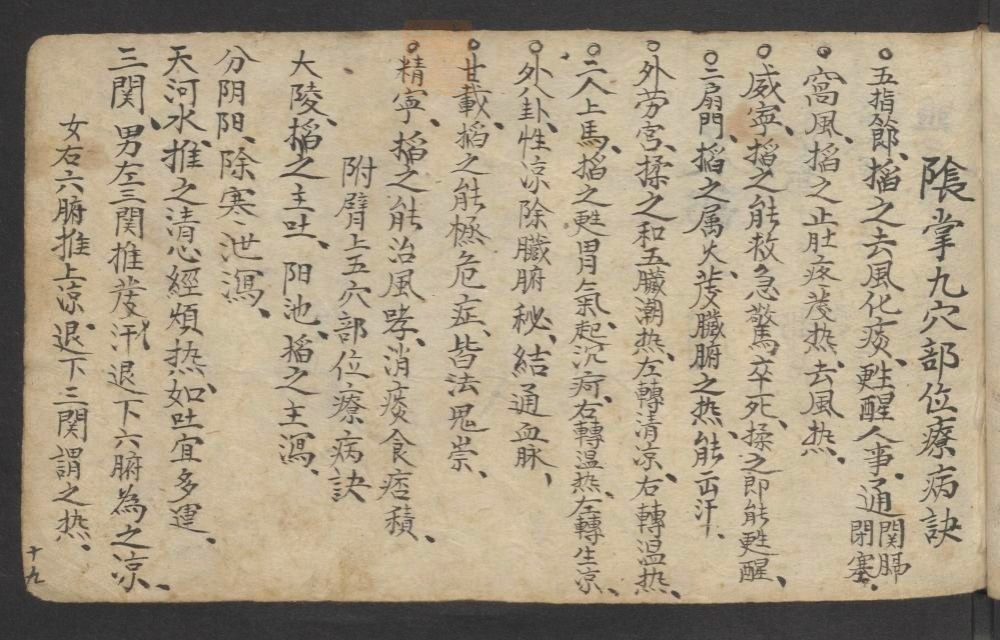 陰掌九穴部位療病訣
五指節、搯之去風化痰、甦醒人事、通關膈閉塞、
窩風、搯之止肚疼、發热、去風热、
威寧、搯之能救急驚卒死、揉之即能甦醒、
二扇門、搯之属火、發臟腑之热、能出汗、
外劳宮、揉之和五臟潮热、左轉清凉、右轉温热、
二人上馬、搯之甦胃氣、起沉疴、右轉温热、左轉生凉、
外八卦、性凉除臟腑秘、結通血脉、
甘載、搯之能極危症、皆法鬼祟、
精寧、搯之能治風哮、消痰食痞積、
附臂上五穴部位療病訣
大陵、搯之主吐、阳池、搯之主瀉、
分阴阳、除寒泄瀉、
天河水、推之清心經煩热、如吐宜多運、
三関、男左三関推發汗、退下六腑為之凉、
女右六腑推上凉、退下三関謂之热、
十九